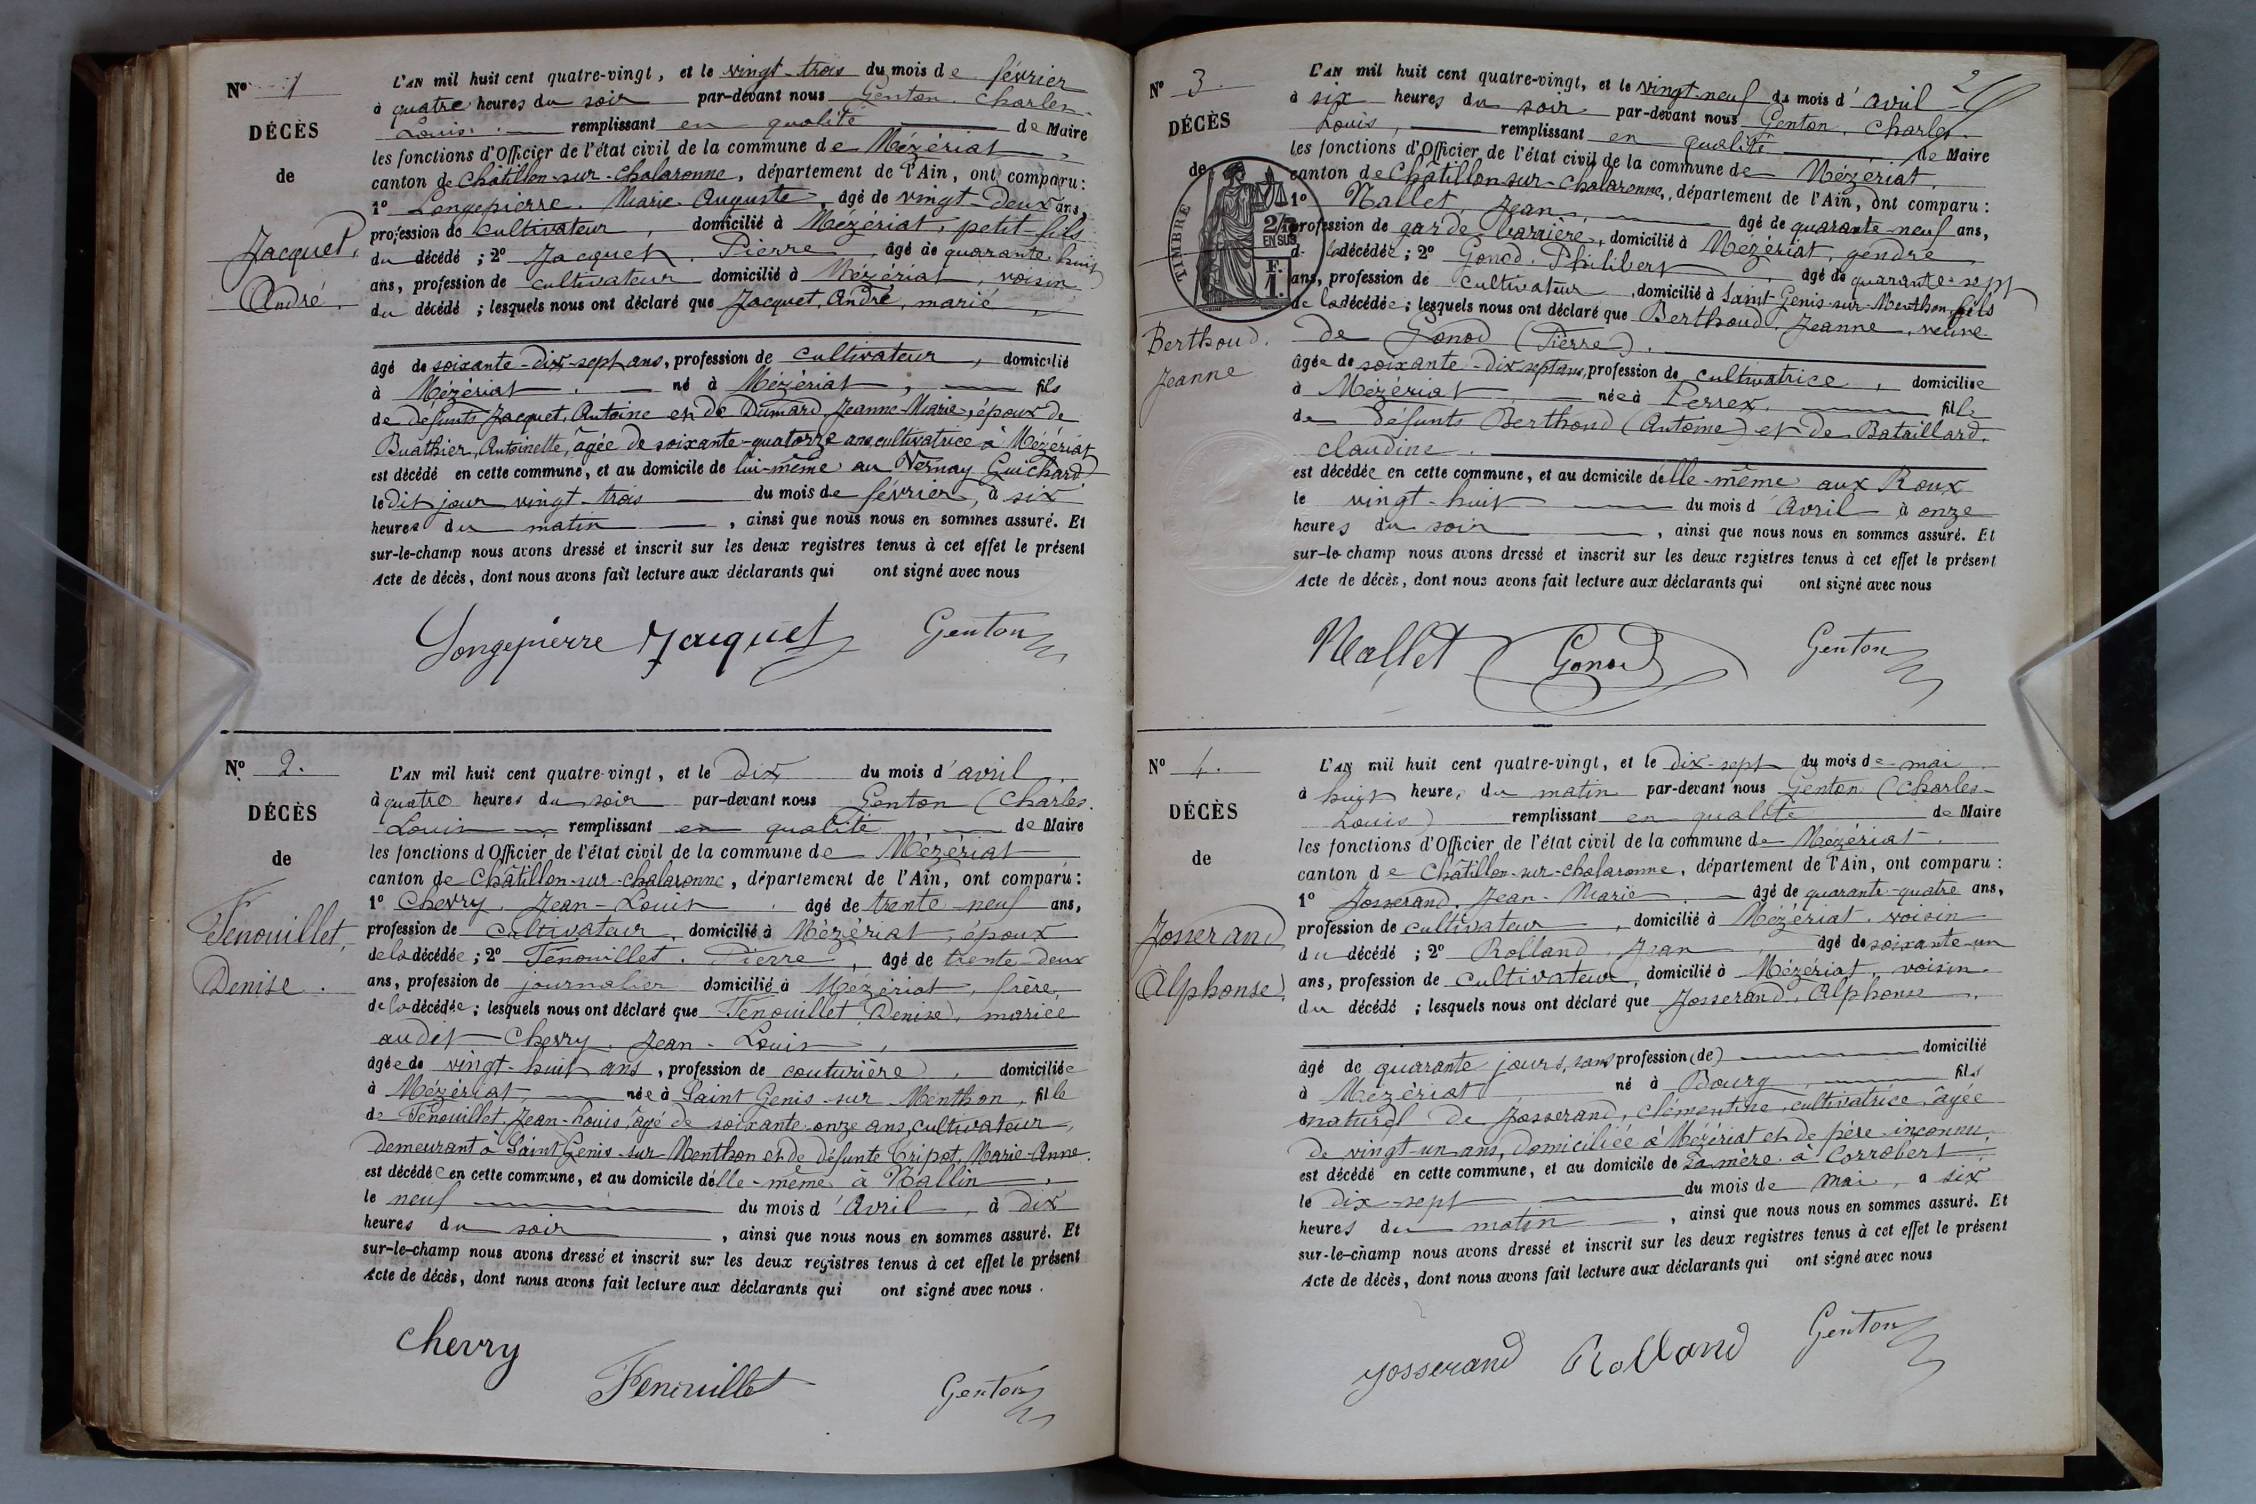 N° 1
DÉCÈS
de
Jacquet,
André.
L'AN mil huit cent quatre-vingt, et le vingt-trois du mois de février
à quatre heures du soir par-devant nous Genton, Charles
Louis, remplissant en qualité de Maire
les fonctions d'Officier de l'état civil de la commune de Mézériat,
canton de Châtillon-sur-Chalaronne, département de l'Ain, ont comparu:
1° Longepierre, Marie Auguste, âgé de vingt-deux ans,
profession de cultivateur, domicilié à Mézériat, petit-fils
du décédé ; 2° Jacquet, Pierre, âgé de quarante-huit
ans, profession de cultivateur domicilié à Mézériat, voisin
du décédé ; lesquels nous ont déclaré que Jacquet, André, marié,
âgé de soixante-dix-sept ans, profession de cultivateur, domicilié
à Mézériat, né à Mézériat, fils
de défunts Jacquet, Antoine et de Dumard, Jeanne-Marie, époux de
Buathier, Antoinette, âgée de soixante-quatorze ans cultivatrice à Mézériat
est décédé en cette commune, et au domicile de lui-même au Vernay Guichard
le dit jour vingt-trois du mois de février, à six
heures du matin, ainsi que nous nous en sommes assuré. Et
sur-le-champ nous avons dressé et inscrit sur les deux registres tenus à cet effet le présent
Acte de décès, dont nous avons fait lecture aux déclarants qui ont signé avec nous
Longepierre Jacquet Genton
N° 2.
DÉCÈS
de
Fenouillet,
Denise.
L'AN mil huit cent quatre-vingt, et le dix du mois d'avril
à quatre heures du soir par-devant nous Genton (Charles
Louis remplissant en qualité de Maire
les fonctions d'Officier de l'état civil de la commune de Mézériat
canton de Châtillon-sur-Chalaronne, département de l'Ain, ont comparu:
1° Chevry, Jean-Louis, âgé de trente-neuf ans,
profession de cultivateur, domicilié à Mézériat, époux
de la décédée ; 2° Fenouillet, Pierre, âgé de trente-deux
ans, profession de journalier domicilié à Mézériat, frère,
de la décédée ; lesquels nous ont déclaré que Fenouillet, Denise, mariée
audit Chevry, Jean-Louis,
âgée de vingt-huit ans, profession de couturière, domiciliée
à Mézériat, née à Saint Genis-sur-Menthon, fille
de Fenouillet, Jean-Louis, âgé de soixante-onze ans, cultivateur,
demeurant à Saint Genis-sur-Menthon et de défunte Tripot, Marie-Anne.
est décédée en cette commune, et au domicile d'elle-même à Nallin,
le neuf du mois d'Avril, à dix
heures du soir, ainsi que nous nous en sommes assuré. Et
sur-le-champ nous avons dressé et inscrit sur les deux registres tenus à cet effet le présent
Acte de décès, dont nous avons fait lecture aux déclarants qui ont signé avec nous.
Chevry Fenouillet Genton
N° 3.
DÉCÈS
de
TIMBRE
2/10
EN SUS
F.
1.
Berthoud,
Jeanne
L'AN mil huit cent quatre-vingt, et le vingt-neuf du mois d'avril
à six heures du soir par-devant nous Genton, Charles
Louis, remplissant en qualité de Maire
les fonctions d'Officier de l'état civil de la commune de Mézériat,
canton de Châtillon-sur-Chalaronne, département de l'Ain, ont comparu:
1° Nallet, Jean, âgé de quarante-neuf ans,
profession de garde-barrière, domicilié à Mézériat, gendre
de la décédée ; 2° Gonod, Philibert, âgé de quarante-sept
ans, profession de cultivateur, domicilié à Saint-Genis-sur-Menthon, fils
de la décédée ; lesquels nous ont déclaré que Berthoud, Jeanne, veuve
de Gonod (Pierre).
âgée de soixante-dix-sept ans, profession de cultivatrice, domiciliée
à Mézériat, née à Perrex, fille
de défunts Berthoud (Antoine) et de Bataillard,
Claudine.
est décédée en cette commune, et au domicile d'elle-même aux Roux
le vingt-huit du mois d'Avril à onze
heures du soir, ainsi que nous nous en sommes assuré. Et
sur-le-champ nous avons dressé et inscrit sur les deux registres tenus à cet effet le présent
Acte de décès, dont nous avons fait lecture aux déclarants qui ont signé avec nous
Nallet Gonod Genton
N° 4.
DÉCÈS
de
Josserand
Alphonse,
L'AN mil huit cent quatre-vingt, et le dix-sept du mois de mai
à huit heures du matin par-devant nous Genton (Charles-
Louis) remplissant en qualité de Maire
les fonctions d'Officier de l'état civil de la commune de Mézériat.
canton de Châtillon-sur-Chalaronne, département de l'Ain, ont comparu:
1° Josserand, Jean-Marie, âgé de quarante-quatre ans,
profession de cultivateur, domicilié à Mézériat, voisin
du décédé ; 2° Rolland, Jean, âgé de soixante-un
ans, profession de cultivateur, domicilié à Mézériat, voisin
du décédé ; lesquels nous ont déclaré que Josserand, Alphonse,
âgé de quarante jours, sans profession (de) domicilié
à Mézériat né à Bourg, fils
naturel de Josserand, Clémentine, cultivatrice, âgée
de vingt-un ans, domiciliée à Mézériat et de père inconnu,
est décédé en cette commune, et au domicile de sa mère à Corrobert,
le dix-sept du mois de mai, à six
heures du matin, ainsi que nous nous en sommes assuré. Et
sur-le-champ nous avons dressé et inscrit sur les deux registres tenus à cet effet le présent
Acte de décès, dont nous avons fait lecture aux déclarants qui ont signé avec nous
Josserand Rolland Genton